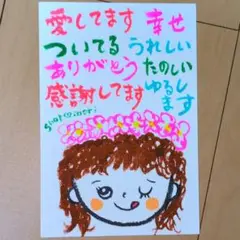 愛してます 幸せ
ついてる うれしい
ありがとう たのしい
感謝してます ゆるします